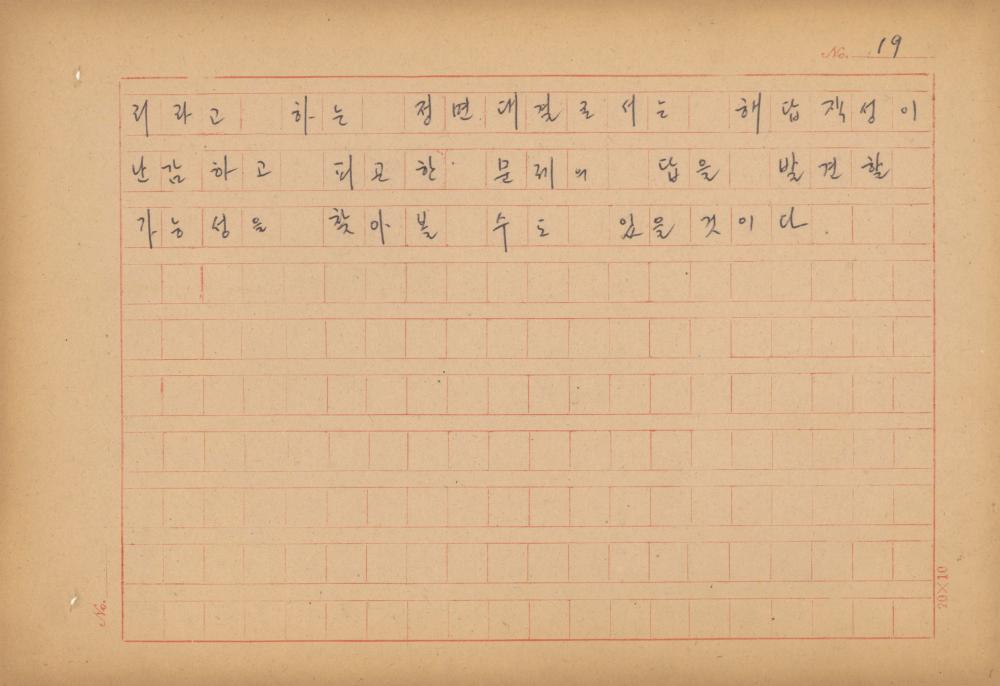 No. 19
리라고 하는 정면대결로서는 해답작성이
난감하고 피곤한 문제의 답을 발견할
가능성을 찾아볼 수도 있을것이다.
No.
20×10